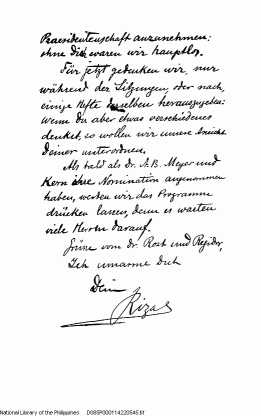 Praesidentenschaft anzunehmen:
ohne Dich waren wir hauptlos.
Für jetzt gedenken wir, nur
während der Sitzungen, oder nach,
einige Hefte derselben herauszugeben:
wenn Du aber etwas verschiedenes
denkst, so wollen wir unsere Ansicht
Deiner unterordnen.
Als bald als dr. A. B. Meyer und
Kern ihre Nomination angenommen
haben, werden wir das Programme
drücken lassen, denn es warten
viele Herren darauf.
Grüsse vom dr. Rost und Regidor,
Ich umarme Dich
Dein
Rizal
National Library of the Philippines